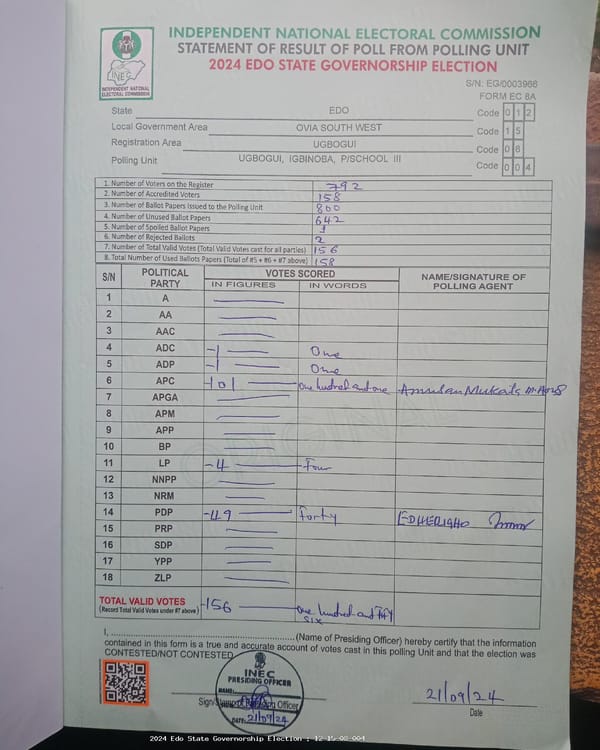 INDEPENDENT NATIONAL ELECTORAL COMMISSION
STATEMENT OF RESULT OF POLL FROM POLLING UNIT
2024 EDO STATE GOVERNORSHIP ELECTION
INEC
INDEPENDENT NATIONAL
ELECTORAL COMMISSION
S/N: EG/0003966
FORM EC 8A
State EDO Code 0 1 2
Local Government Area OVIA SOUTH WEST Code 1 5
Registration Area UGBOGUI Code 0 6
Polling Unit UGBOGUI, IGBINOBA, P/SCHOOL III Code 0 0 4
1. Number of Voters on the Register 792
2. Number of Accredited Voters 158
3. Number of Ballot Papers Issued to the Polling Unit 800
4. Number of Unused Ballot Papers 642
5. Number of Spoiled Ballot Papers
6. Number of Rejected Ballots 2
7. Number of Total Valid Votes (Total Valid Votes cast for all parties) 156
8. Total Number of Used Ballots Papers (Total of #5 + #6 + #7 above) 158
S/N POLITICAL PARTY VOTES SCORED NAME/SIGNATURE OF POLLING AGENT
IN FIGURES IN WORDS
1 A
2 AA
3 AAC
4 ADC -1 One
5 ADP -1 One
6 APC -101 One hundred and one
7 APGA
8 APM
9 APP
10 BP
11 LP -4 Four
12 NNPP
13 NRM
14 PDP -49 Forty
15 PRP
16 SDP
17 YPP
18 ZLP
TOTAL VALID VOTES -156 One hundred and Fifty
(Record Total Valid Votes under #7 above) six
I, (Name of Presiding Officer) hereby certify that the information
contained in this form is a true and accurate account of votes cast in this polling Unit and that the election was
CONTESTED/NOT CONTESTED
INEC
PRESIDING OFFICER
NAME:
Officer
DATE: 21/09/24
21/09/24
Date
2024 Edo State Governorship Election : 12-15-06-004